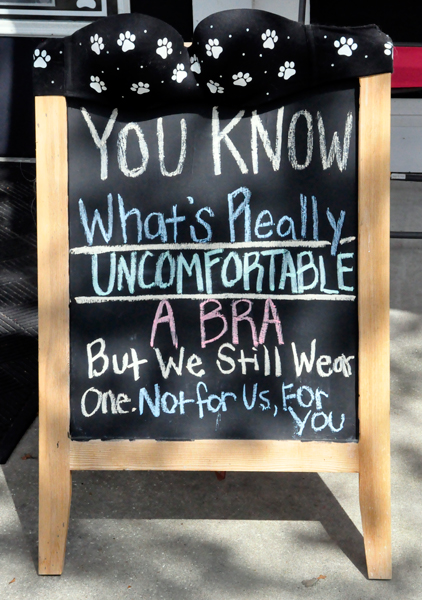 YOU KNOW
What's Really
UNCOMFORTABLE
A BRA
But We Still Wear
One. Not for Us, For
You